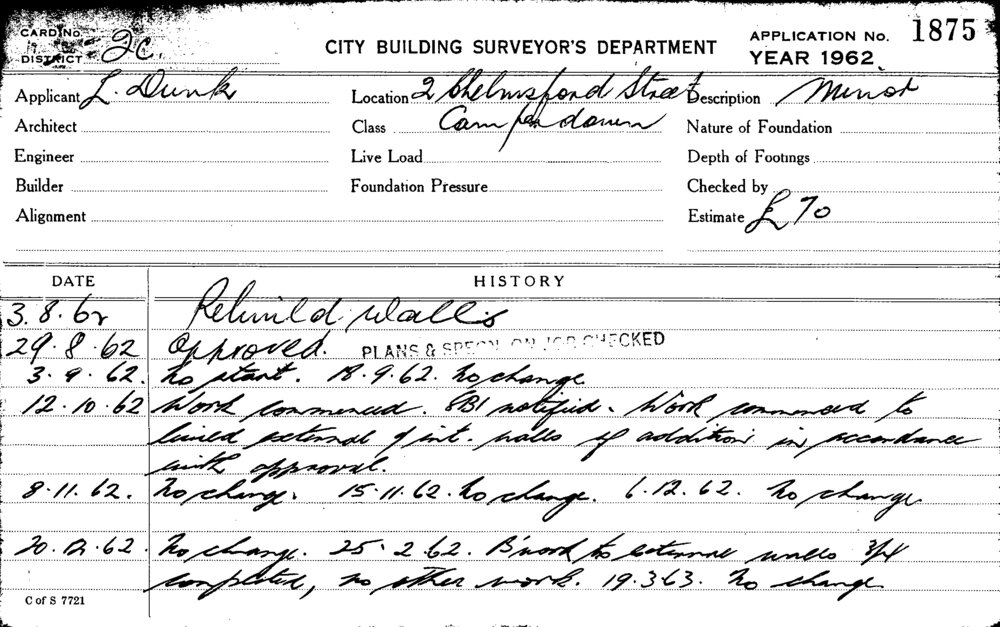 CARD No.
DISTRICT 2c.
CITY BUILDING SURVEYOR'S DEPARTMENT
APPLICATION No. 1875
YEAR 1962
Applicant L. Dunk Location 2 Chelmsford Street Description Minor
Architect Class Camperdown Nature of Foundation
Engineer Live Load Depth of Footings
Builder Foundation Pressure Checked by
Alignment Estimate £70
DATE HISTORY
3.8.62 Rebuild walls
29.8.62 Approved. PLANS & SPECN. ON JOB CHECKED
3.9.62. No start. 18.9.62. No change
12.10.62 Work commenced. SBI notified. Work commenced to
build external & int. walls of addition in accordance
with approval.
8.11.62. No change. 15.11.62. No change. 6.12.62. No change
20.12.62. No change. 25.2.62. B'work to external walls 3/4
completed, no other work. 19.3.63. No change
C of S 7721